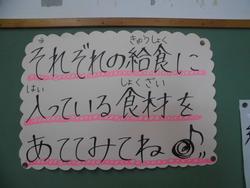 きゅうしょく
それぞれの給食に
はい しょくざい
入っている食材を
あててみてね♪